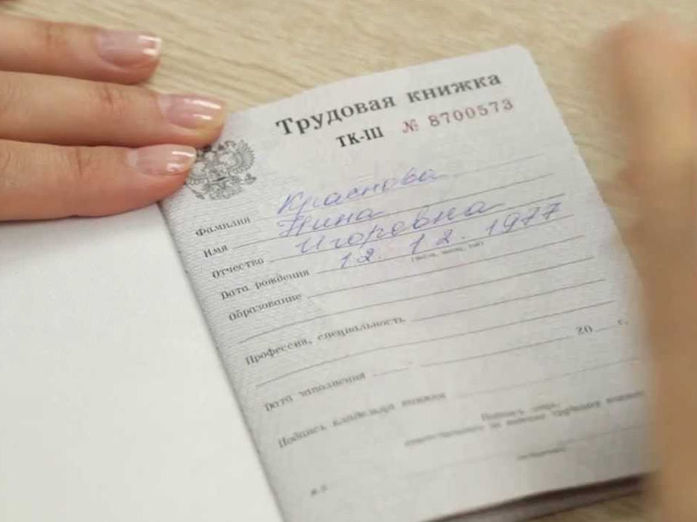 Трудовая книжка
ТК-III № 8700573
Фамилия Краснова
Имя Нина
Отчество Игоревна
Дата рождения 12. 12. 1977
(число, месяц, год)
Образование
Профессия, специальность
20 г.
Дата заполнения
Подпись владельца книжки
Подпись лица,
ответственного за ведение трудовых книжек